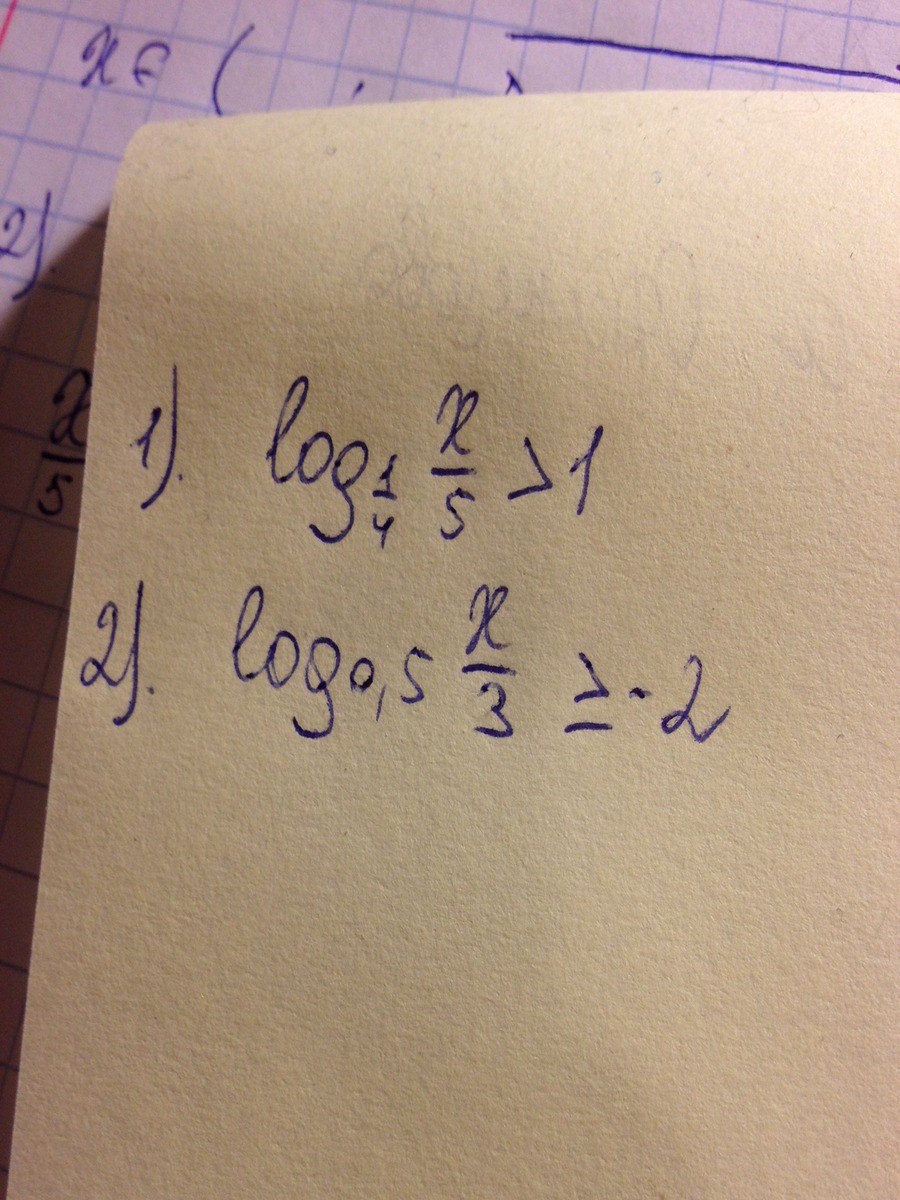 x ∈ (
2).
x/5
1). log_{1/4} x/5 > 1
2). log_{0,5} x/3 ≥ -2